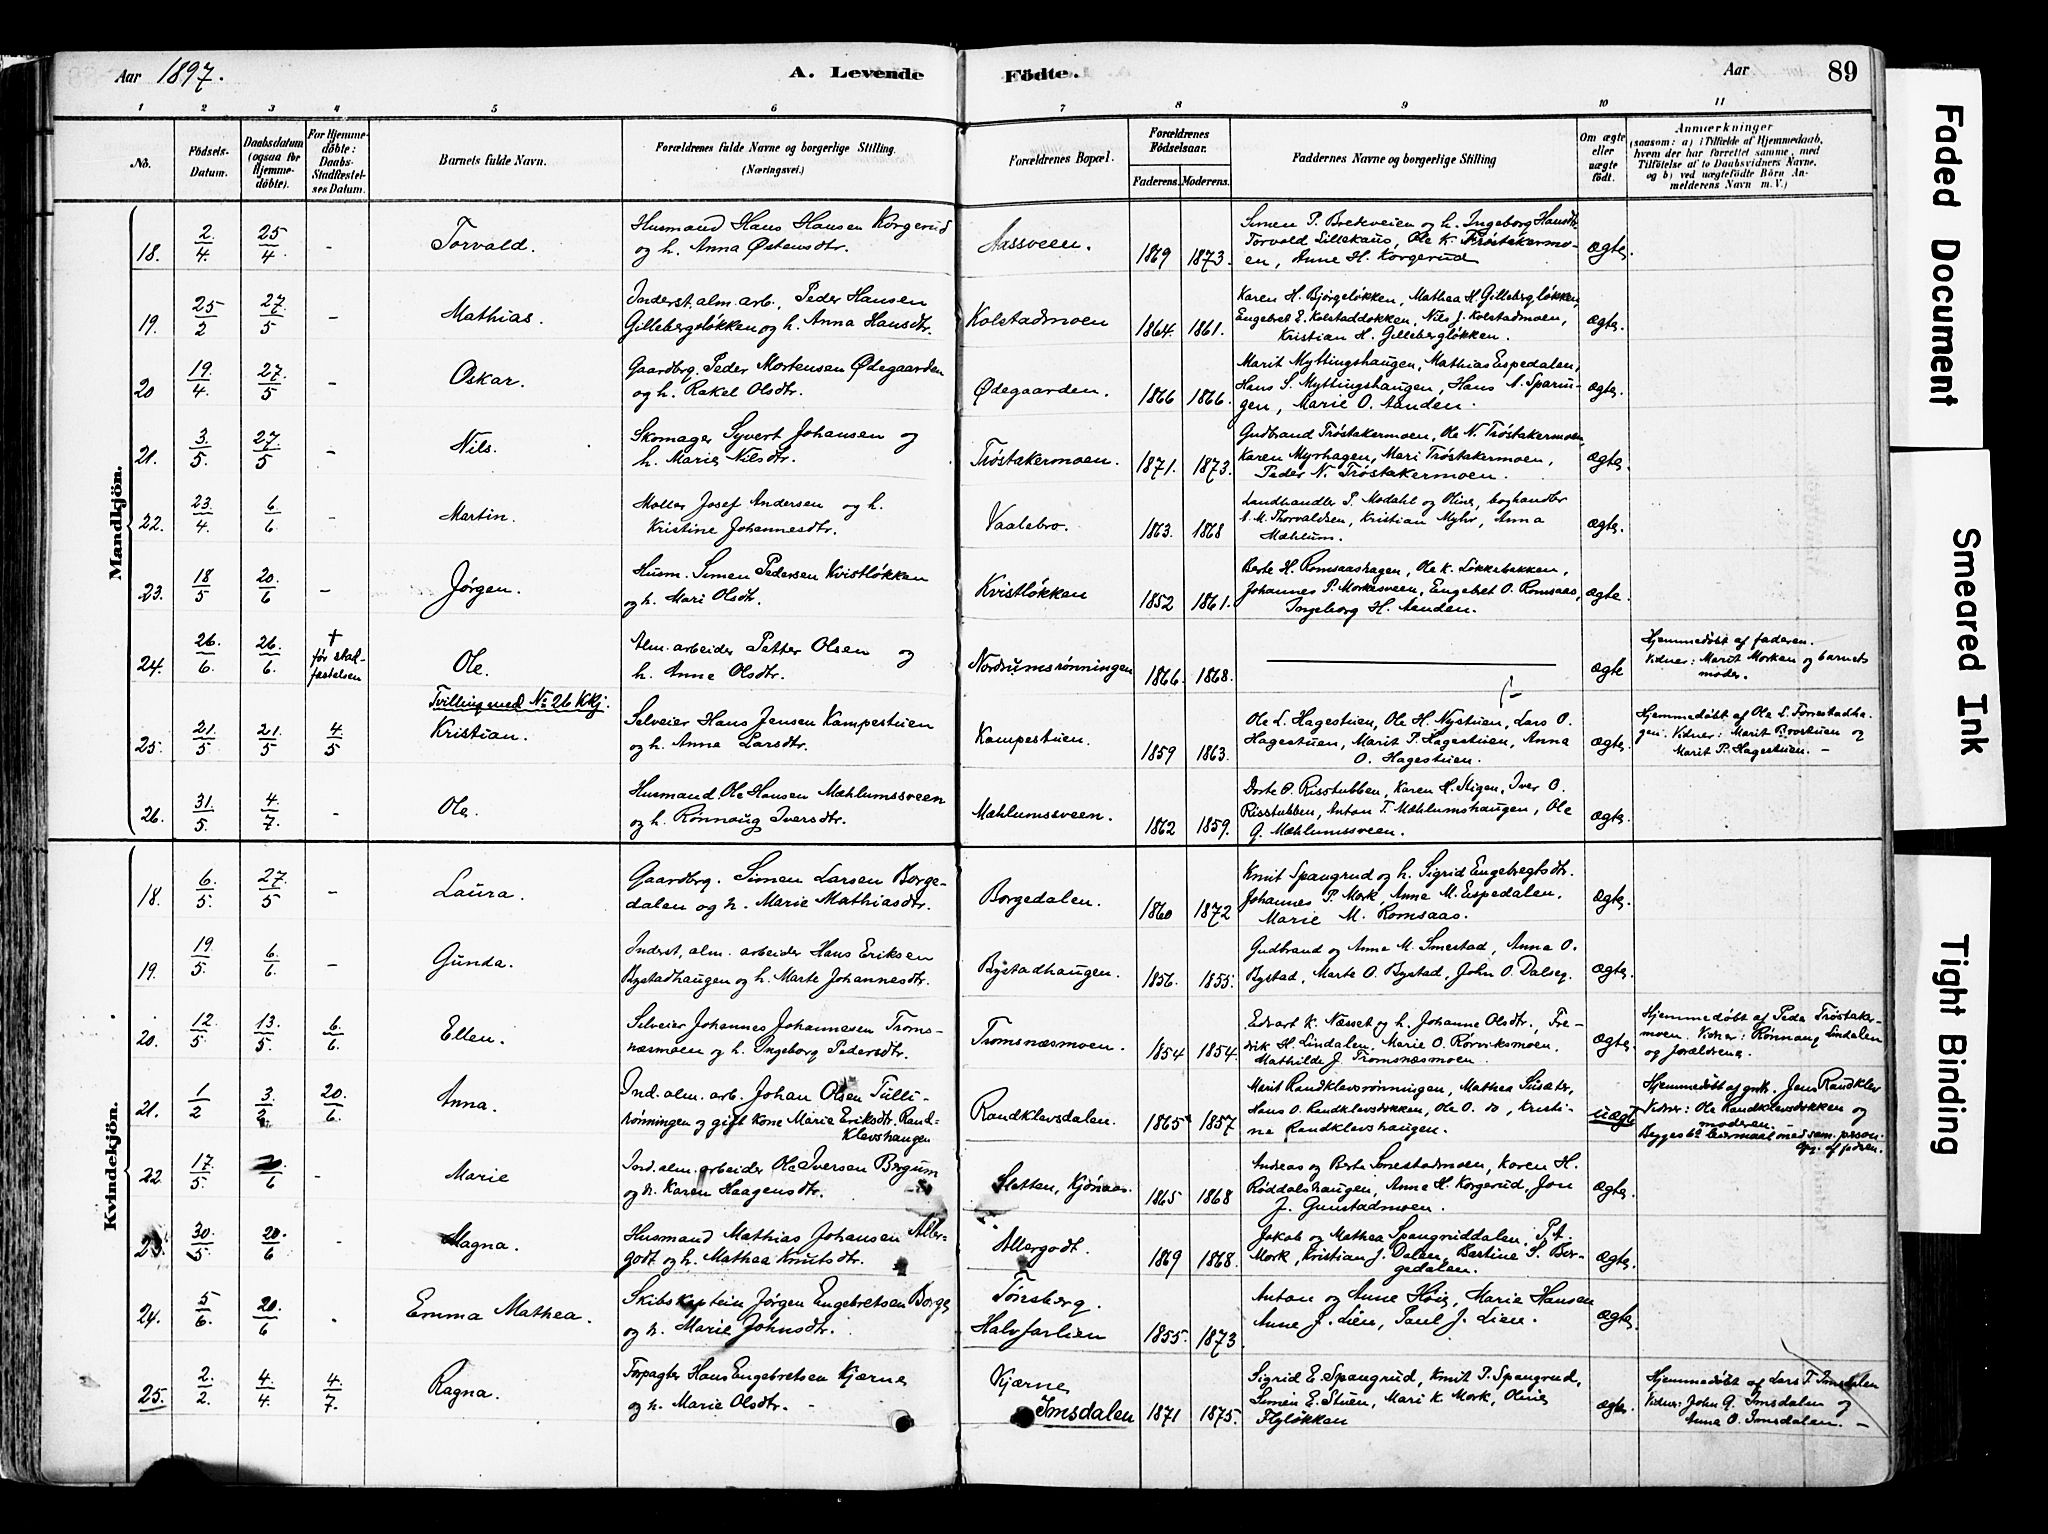 Aar 1897.
A. Levende
Födte.
Aar
89
1 2 3 4 5 6 7 8 9 10 11
No.
Födsels-
Datum.
Daabsdatum
(ogsaa for
Hjemme-
döbte).
For Hjemme-
döbte:
Daabs-
Stadfæstel-
ses Datum.
Barnets fulde Navn.
Forældrenes fulde Navne og borgerlige Stilling
(Næringsvei.)
Forældrenes Bopæl.
Forældrenes
Födselsaar.
Faderens. Moderens.
Faddernes Navne og borgerlige Stilling
Om ægte
eller
uægte
födt.
Anmærkninger
(saasom: a) i Tilfælde af Hjemmedaab,
hvem der har forrettet samme, med
Tilföielse af to Daabsvidners Navne,
og b) ved uægtefödte Börn An-
melderens Navn m. V.)
Mandkjön.
18. 2/4 25/4 - Torvald.
Husmand Hans Hansen Korgerud
og h. Anna Østensdtr.
Aassveen. 1869 1873.
Simen P. Bredeveien og h. Ingeborg Hansdtr.
Torvald Lillehaus, Ole K. Trøstakermo-
en, Anne H. Korgerud
ægte.
19. 25/2 27/5 - Mathias.
Inderst. alm. arb. Peder Hansen
Gillebergsløkken og h. Anna Hansdtr.
Kolstadmoen 1864. 1861.
Karen H. Bjørgeløkken, Mathea H. Gillebergløkken,
Engebret E. Kolstaddokken, Nils J. Kolstadmoen,
Kristian H. Gillebergløkken.
ægte.
20 19/4 27/5 - Oskar.
Gaardbrg. Peder Mortensen Ødegaarden
og h. Rakel Olsdtr.
Ødegaarden. 1866 1866.
Marit Myttingshaugen, Mathias Espedalen,
Hans S. Myttingshaugen, Hans N. Sparin-
gen, Marie O. Aanden.
ægte.
21. 3/5. 27/5 - Nils.
Skomager Syvert Johansen og
h. Marie Nilsdtr.
Trøstakermoen. 1871. 1873.
Gudbrand Trøstakermoen, Ole N. Trøstakermoen,
Karen Myrhagen, Mari Trøstakermoen,
Peder N. Trøstakermoen.
ægte.
22. 23/4. 6/6 - Martin.
Møller Josef Andersen og h.
Kristine Johannesdtr.
Vaalebro. 1863. 1868
Landhandler P. Modahl og Oline, boghandler
A. M. Thorvaldsen, Kristian Myhr, Anna
Mæhlum.
ægte.
23. 18/5 20/6 - Jørgen.
Husm. Simen Pedersen Kvistløkken
og h. Mari Olsdtr.
Kvistløkken 1852 1861.
Berte H. Romsaashagen, Ole K. Løkkebakken,
Johannes P. Morkesveen, Engebret O. Romsaas,
Ingeborg H. Aanden.
ægte.
24. 26/6. 26/6 † før stad-
fæstelsen
Ole.
Alm. arbeider Petter Olsen og
h. Anne Olsdtr.
Nordrumsrønningen 1866. 1868.
ægte
Hjemmedøbt af faderen.
Vidner: Marit Morken og barnets
moder.
Tvilling med No 26 Kkj.
25. 21/5 21/5 4/5 Kristian.
Selveier Hans Jensen Kampestuen
og h. Anne Larsdtr.
Kampestuen. 1859 1863.
Ole L. Hagestuen, Ole H. Nystuen, Lars O.
Hagestuen, Marit P. Hagestuen, Anna
O. Hagestuen.
ægte.
Hjemmedøbt af Ole L. Fonestadha-
gen. Vidner: Marit Brostuen og
Marit P. Hagestuen. -
26. 31/5. 4/7 - Ole.
Husmand Ole Hansen Mæhlumssveen
og h. Rønnaug Iversdtr.
Mæhlumssveen. 1862 1859.
Dorte O. Risstubben, Karen H. Stigen, Iver O.
Risstubben, Anton T. Mæhlumshaugen, Ole
G. Mæhlumssveen.
ægte.
Kvindekjön.
18. 6/5. 27/5 - Laura.
Gaardbrg. Simen Larsen Borge-
dalen og h. Marie Mathiasdtr.
Borgedalen. 1860 1872
Knut Spangrud og h. Sigrid Engebregtsdtr.
Johannes P. Mork, Anne M. Espedalen.
Marie M. Romsaas.
ægte.
19. 19/5. 6/6. - Gunda.
Inderst, alm. arbeider Hans Eriksen
Bystadhaugen og h. Marte Johannesdtr.
Bystadhaugen. 1856. 1855.
Gudbrand og Anne M. Smestad, Anna O.
Bystad, Marte O. Bystad, John O. Dalseg.
ægte.
20. 12/5 13/5. 6/6. Ellen.
Selveier Johannes Johannesen Troms-
næsmoen og h. Ingeborg Pedersdtr.
Tromsnæsmoen. 1854 1854.
Edvart K. Næsset og h. Johanne Olsdtr., Fre-
drik H. Lindalen, Marie O. Rørviksmoen.
Mathilde J. Tromsnæsmoen.
ægte.
Hjemmedøbt af Peder Trøstaker-
moen. Vidner: Rønnaug Lindalen
og forældrene.
21. 1/2 3/2 20/6. Anna.
Ind. alm. arb. Johan Olsen Tulli-
rønningen og gift kone Marie Eriksdtr. Rand-
klevshaugen
Randklevsdalen. 1865 1857
Marit Randklevsrønningen, Mathea Susæter,
Hans O. Randklevsdokken, Ole O. do, Kristi-
ne Randklevshaugen.
uægte
Hjemmedøbt af grbr. Jens Randklev
Vidner: Ole Randklevsdokken og
moderen.
Begges 6te leiermaal med sam. person.
Opg. af faderen.
22 17/5. 20/6 - Marie
Ind. alm. arbeider Ole Iversen Bergum
og h. Karen Haagensdtr.
Sletten, Kjønaas. 1865 1868
Andreas og Berte Smestadmoen, Karen H.
Røddalshaugen, Anne H. Korgerud, Jon
J. Gunstadmoen.
ægte.
23. 30/5. 20./6 - Magna.
Husmand Mathias Johansen Aller-
godt og h. Mathea Knutsdtr.
Allergodt. 1869 1868.
Jakob og Mathea Spangruddalen, P. t.
Mork, Kristian J. Dalen, Bertine S. Bor-
gedalen.
ægte.
24. 5/6. 20./6 . Emma Mathea.
Skibskaptein Jørgen Engebretsen Borge
og h. Marie Johnsdtr.
Tønsberg.
Halvfarlien 1855. 1873.
Anton og Anne Høie, Marie Hansen
Anne J. Lien, Paul J. Lien.
ægte.
25. 2/2. 4/4. 4/7 Ragna.
Forpagter Hans Engebretsen Kjærne
og h. Marie Olsdtr. -
Kjærne
Imsdalen 1871 1875.
Sigrid E. Spangrud, Knut P. Spangrud,
Simen E. Stuen, Mari K. Mork, Oline
Flyløkken
ægte.
Hjemmedøbt af Lars T. Imsdalen
Vidner: John G. Imsdalen og
Anne O. Imsdalen. -
Faded Document
Smeared Ink
Tight Binding